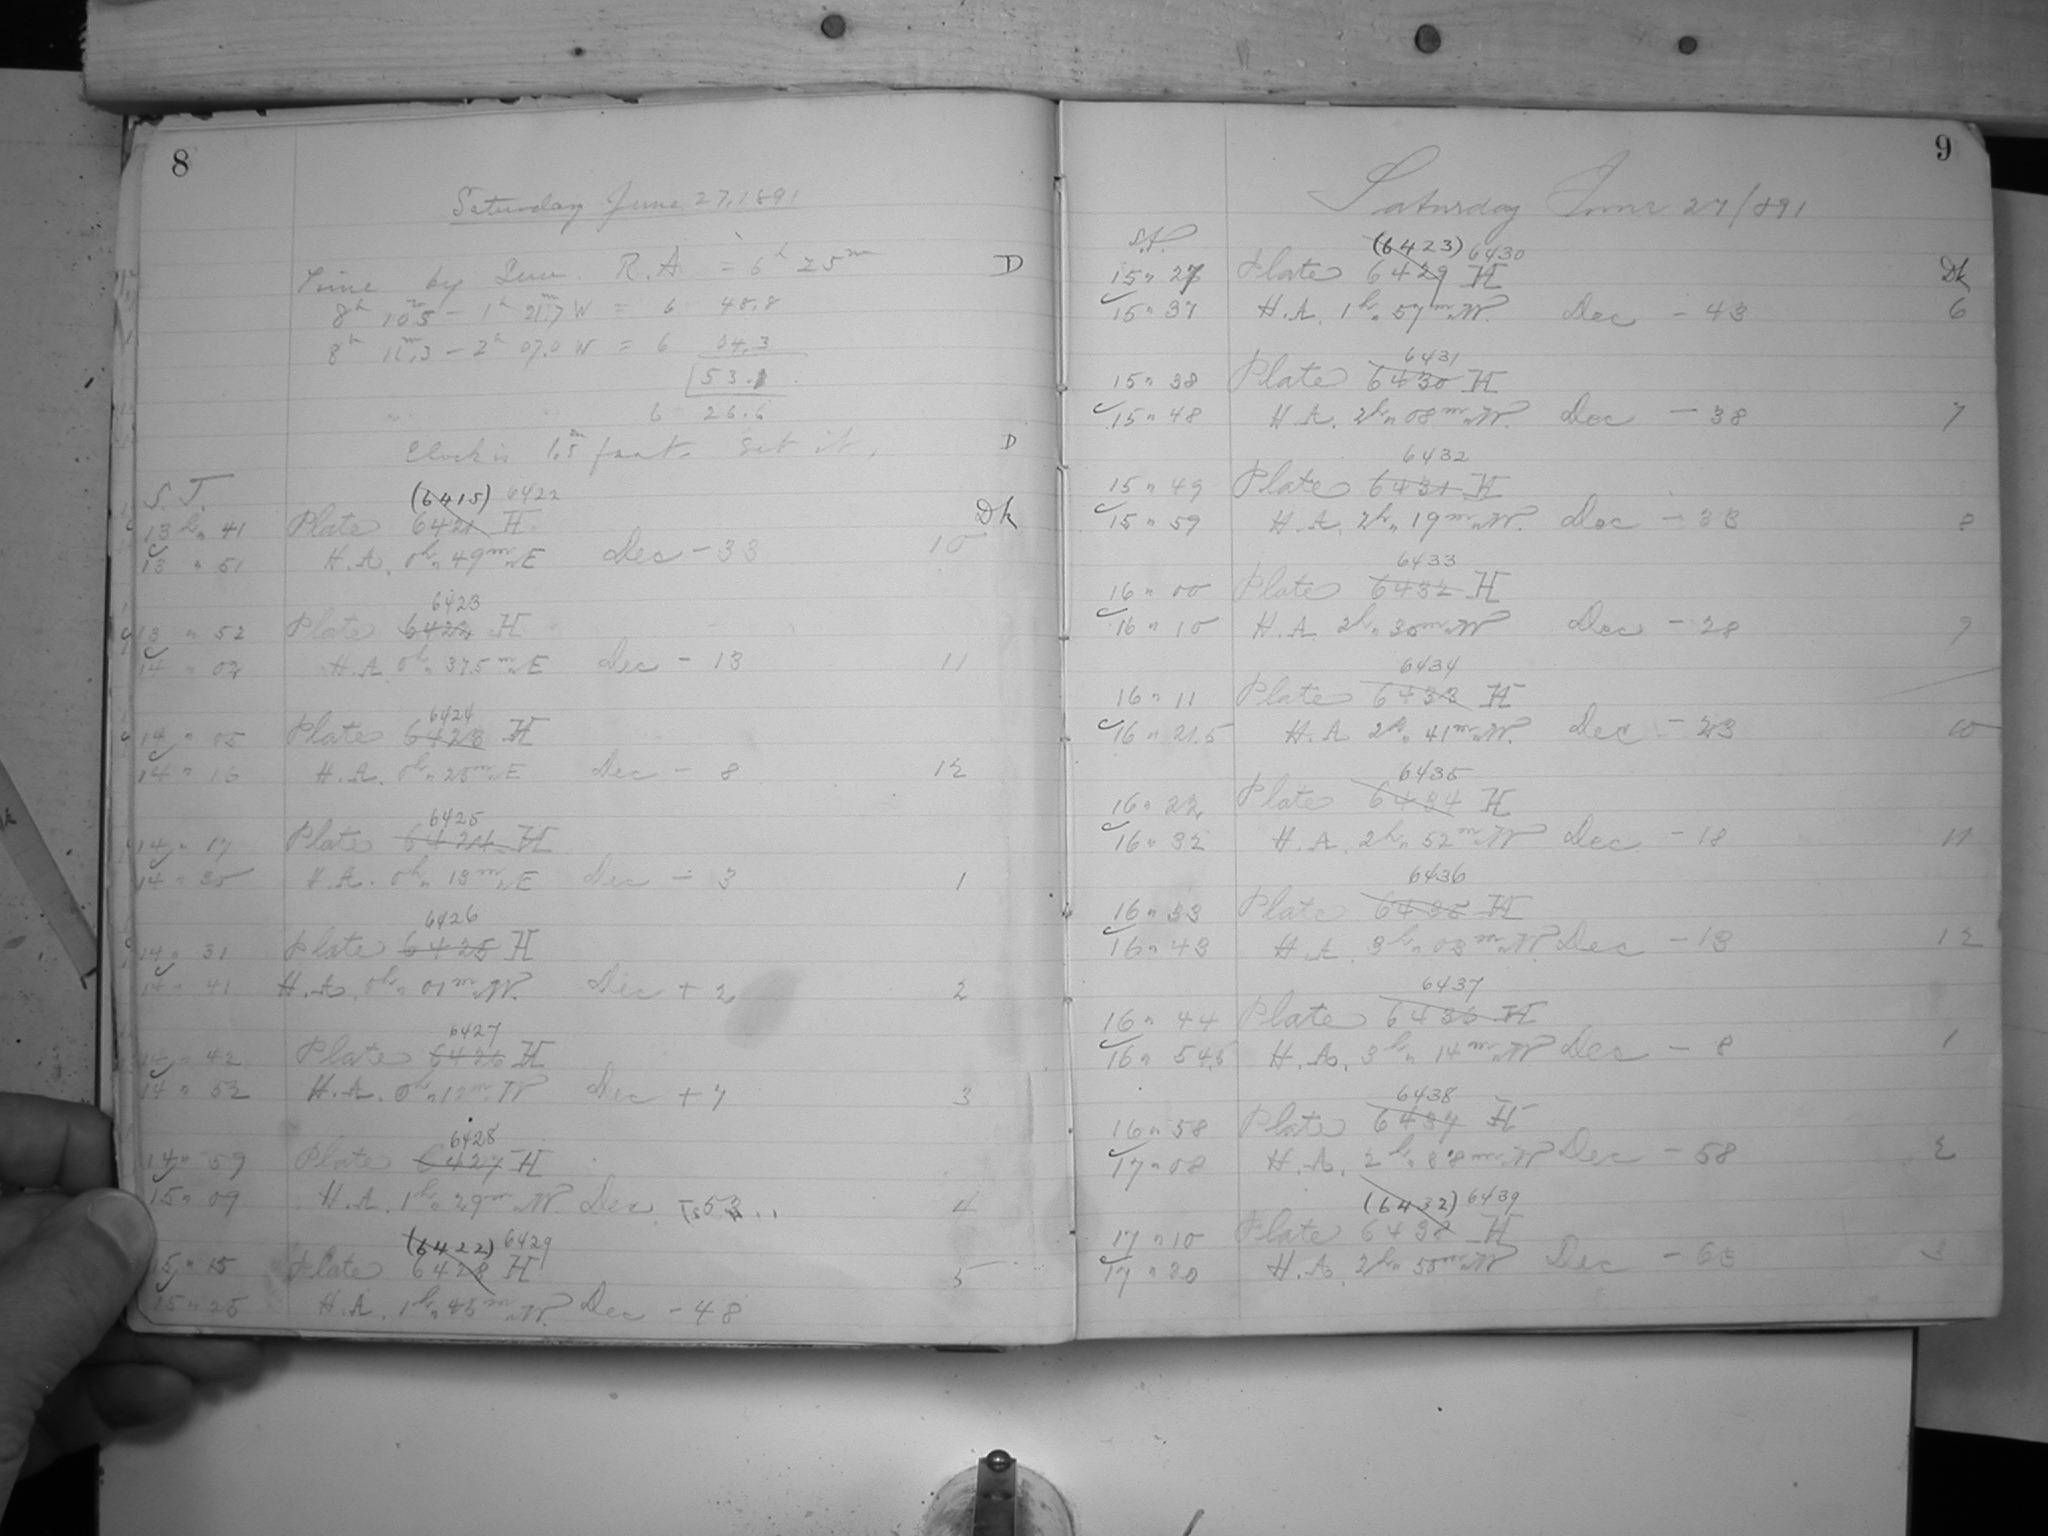 8
Saturday June 27, 1891
Time by Sun. R.A. = 6h 25m D
8h 10.5m - 1h 21.7m W = 6 48.8
8h 11.3m - 2h 07.0 W = 6 04.3
53.1
" 6 26.6
Clock is 1.5m fast. Set it. D
S.T.
(6415) 6422
13h " 41 Plate 6421 H Dk
13 " 51 H.A. 0h " 49m " E Dec - 33 10
6423
13 " 52 Plate 6422 H
14 " 02 H.A. 0h " 37.5m " E Dec - 13 11
6424
14 " 05 Plate 6423 H
14 " 16 H.A. 0h " 25m " E Dec - 8 12
6425
14 " 17 Plate 6424 H
14 " 30 H.A. 0h " 13m " E Dec - 3 1
6426
14 " 31 Plate 6425 H
14 " 41 H.A. 0h " 01m " W. Dec + 2 2
6427
14 " 42 Plate 6426 H
14 " 52 H.A. 0h " 12m " W Dec + 7 3
6428
14 " 59 Plate 6427 H
15 " 09 H.A. 1h " 29m " W. Dec 53 4
(6422) 6429
15 " 15 Plate 6428 H 5
15 " 25 H.A. 1h " 45m " W. Dec - 48
9
Saturday June 27/891
S.T.
(6423) 6430
15 " 27 Plate 6429 H Dk
15 " 37 H.A. 1h " 57m " W. Dec - 43 6
6431
15 " 38 Plate 6430 H
15 " 48 H.A. 2h " 08m " W. Dec - 38 7
6432
15 " 49 Plate 6431 H
15 " 59 H.A. 2h " 19m " W. Dec - 33 8
6433
16 " 00 Plate 6432 H
16 " 10 H.A. 2h " 30m " W Dec - 28 9
6434
16 " 11 Plate 6433 H
16 " 21.5 H.A. 2h " 41m " W. Dec - 23 10
6435
16 " 22 Plate 6434 H
16 " 32 H.A. 2h " 52m " W Dec - 18 11
6436
16 " 33 Plate 6435 H
16 " 43 H.A. 3h " 03m " W. Dec - 13 12
6437
16 " 44 Plate 6436 H
16 " 54.5 H.A. 3h " 14m " W Dec - 8 1
6438
16 " 58 Plate 6437 H
17 " 08 H.A. 2h " 38m " W Dec - 58 2
(6432) 6439
17 " 10 Plate 6438 H
17 " 20 H.A. 2h " 55m " W Dec - 63 3